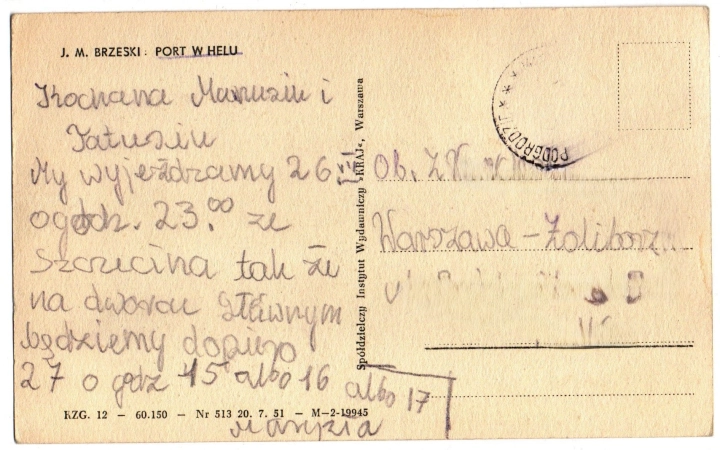 J. M. BRZESKI: PORT W HELU
Kochana Mamusiu i
Tatusiu
My wyjeżdzamy 26 VII
o godz. 23.00 ze
Szczecina tak że
na dworcu Głównym
będziemy dopiero
27 o godz 15 albo 16 albo 17
Marysia
RZG. 12 — 60.150 — Nr 513 20. 7. 51 — M-2-19945
Spółdzielczy Instytut Wydawniczy »KRAJ«, Warszawa
PODGRODZIE
Ob.
Warszawa - Żoliborz